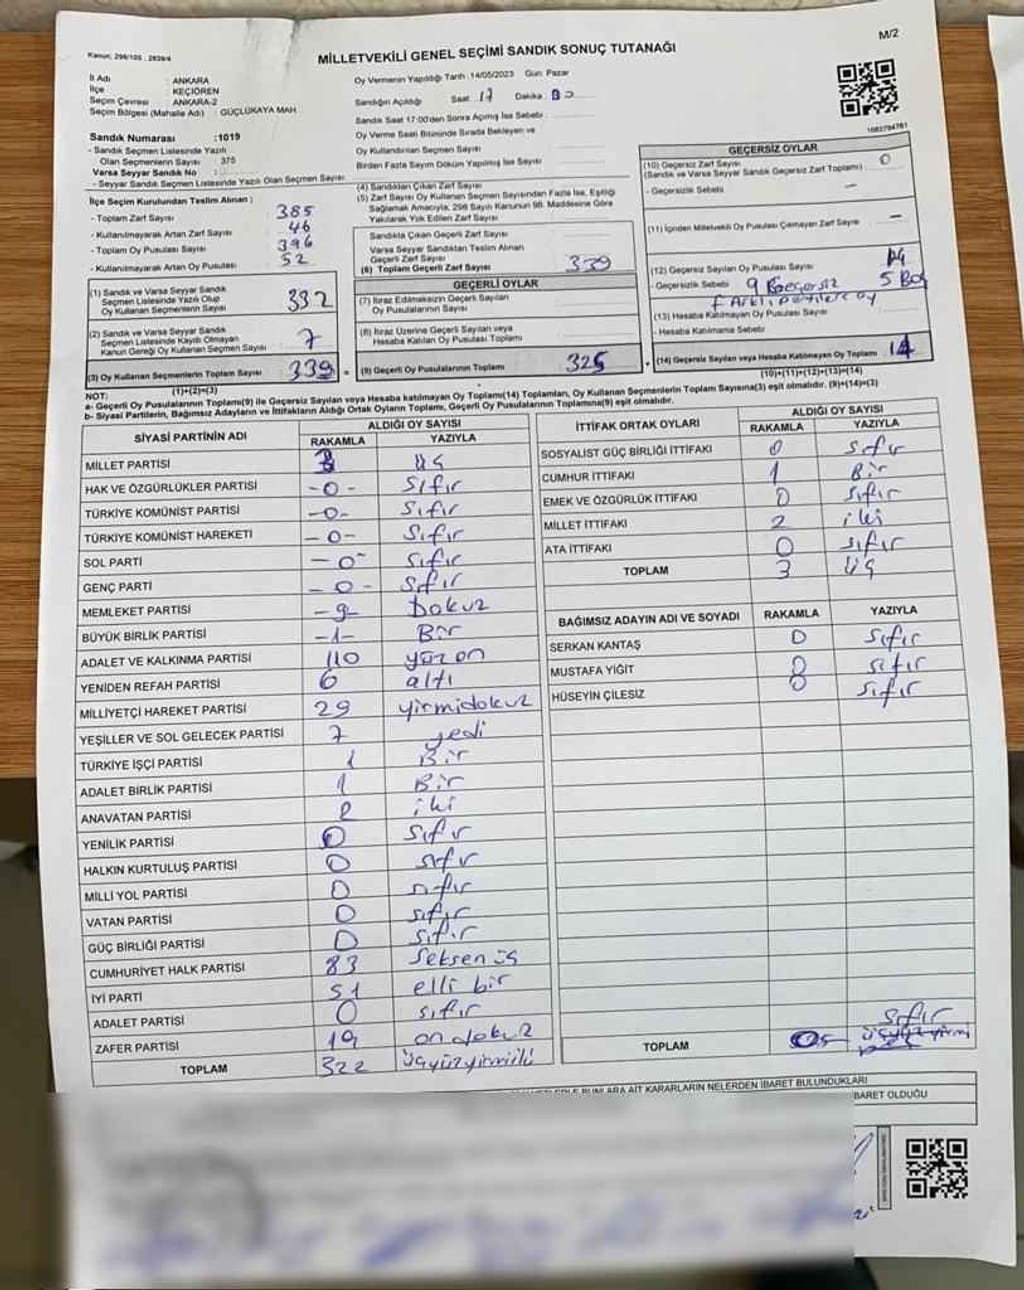 Kanun: 298/105 , 2839/4
MİLLETVEKİLİ GENEL SEÇİMİ SANDIK SONUÇ TUTANAĞI
M/2
İl Adı : ANKARA
İlçe : KEÇİÖREN
Seçim Çevresi : ANKARA-2
Seçim Bölgesi (Mahalle Adı) : GÜÇLÜKAYA MAH.
Oy Vermenin Yapıldığı Tarih :14/05/2023 Gün: Pazar
Sandığın Açıldığı Saat: 17 Dakika:
Sandık Saat 17:00'den Sonra Açılmış İse Sebebi
Oy Verme Saati Bitiminde Sırada Bekleyen ve
Oy Kullandırılan Seçmen Sayısı
Birden Fazla Sayım Döküm Yapılmış İse Sayısı
Sandık Numarası :1019
- Sandık Seçmen Listesinde Yazılı
Olan Seçmenlerin Sayısı : 375
Varsa Seyyar Sandık No :
- Seyyar Sandık Seçmen Listesinde Yazılı Olan Seçmen Sayısı
İlçe Seçim Kurulundan Teslim Alınan :
- Toplam Zarf Sayısı 385
- Kullanılmayarak Artan Zarf Sayısı 46
- Toplam Oy Pusulası Sayısı 396
- Kullanılmayarak Artan Oy Pusulası 52
(1) Sandık ve Varsa Seyyar Sandık
Seçmen Listesinde Yazılı Olup
Oy Kullanan Seçmenlerin Sayısı 332
(2) Sandık ve Varsa Seyyar Sandık
Seçmen Listesinde Kayıtlı Olmayan
Kanun Gereği Oy Kullanan Seçmen Sayısı 7
(3) Oy Kullanan Seçmenlerin Toplam Sayısı 339
(1)+(2)=(3)
(4) Sandıktan Çıkan Zarf Sayısı
(5) Zarf Sayısı Oy Kullanan Seçmen Sayısından Fazla İse, Eşitliği
Sağlamak Amacıyla, 298 Sayılı Kanunun 98. Maddesine Göre
Yakılarak Yok Edilen Zarf Sayısı
Sandıkta Çıkan Geçerli Zarf Sayısı
Varsa Seyyar Sandıktan Teslim Alınan
Geçerli Zarf Sayısı
(6) Toplam Geçerli Zarf Sayısı 339
GEÇERLİ OYLAR
(7) İtiraz Edilmeksizin Geçerli Sayılan
Oy Pusulalarının Sayısı
(8) İtiraz Üzerine Geçerli Sayılan veya
Hesaba Katılan Oy Pusulası Toplamı
(9) Geçerli Oy Pusulalarının Toplamı 325
1082794761
GEÇERSİZ OYLAR
(10) Geçersiz Zarf Sayısı
(Sandık ve Varsa Seyyar Sandık Geçersiz Zarf Toplamı) 0
- Geçersizlik Sebebi —
(11) İçinden Milletvekili Oy Pusulası Çıkmayan Zarf Sayısı —
(12) Geçersiz Sayılan Oy Pusulası Sayısı 14
- Geçersizlik Sebebi 9 5 Boş
(13) Hesaba Katılmayan Oy Pusulası Sayısı
- Hesaba Katılmama Sebebi
(14) Geçersiz Sayılan veya Hesaba Katılmayan Oy Toplamı 14
(10)+(11)+(12)+(13)=(14)
NOT:
a- Geçerli Oy Pusulalarının Toplamı(9) ile Geçersiz Sayılan veya Hesaba katılmayan Oy Toplamı(14) Toplamları, Oy Kullanan Seçmenlerin Toplam Sayısına(3) eşit olmalıdır. (9)+(14)=(3)
b- Siyasi Partilerin, Bağımsız Adayların ve İttifakların Aldığı Ortak Oyların Toplamı, Geçerli Oy Pusulalarının Toplamına(9) eşit olmalıdır.
SİYASİ PARTİNİN ADI ALDIĞI OY SAYISI
RAKAMLA YAZIYLA
MİLLET PARTİSİ 3 üç
HAK VE ÖZGÜRLÜKLER PARTİSİ -0- sıfır
TÜRKİYE KOMÜNİST PARTİSİ -0- sıfır
TÜRKİYE KOMÜNİST HAREKETİ -0- sıfır
SOL PARTİ -0- sıfır
GENÇ PARTİ -0- sıfır
MEMLEKET PARTİSİ -9- Dokuz
BÜYÜK BİRLİK PARTİSİ -1- Bir
ADALET VE KALKINMA PARTİSİ 110 yüz on
YENİDEN REFAH PARTİSİ 6 altı
MİLLİYETÇİ HAREKET PARTİSİ 29 yirmidokuz
YEŞİLLER VE SOL GELECEK PARTİSİ 7 yedi
TÜRKİYE İŞÇİ PARTİSİ 1 Bir
ADALET BİRLİK PARTİSİ 1 Bir
ANAVATAN PARTİSİ 2 iki
YENİLİK PARTİSİ 0 sıfır
HALKIN KURTULUŞ PARTİSİ 0 sıfır
MİLLİ YOL PARTİSİ 0 sıfır
VATAN PARTİSİ 0 sıfır
GÜÇ BİRLİĞİ PARTİSİ 0 sıfır
CUMHURİYET HALK PARTİSİ 83 Seksen üç
İYİ PARTİ 51 elli bir
ADALET PARTİSİ 0 sıfır
ZAFER PARTİSİ 19 on dokuz
TOPLAM 322 üçyüzyirmiiki
İTTİFAK ORTAK OYLARI ALDIĞI OY SAYISI
RAKAMLA YAZIYLA
SOSYALİST GÜÇ BİRLİĞİ İTTİFAKI 0 sıfır
CUMHUR İTTİFAKI 1 Bir
EMEK VE ÖZGÜRLÜK İTTİFAKI 0 sıfır
MİLLET İTTİFAKI 2 iki
ATA İTTİFAKI 0 sıfır
TOPLAM 3 üç
BAĞIMSIZ ADAYIN ADI VE SOYADI RAKAMLA YAZIYLA
SERKAN KANTAŞ 0 sıfır
MUSTAFA YİĞİT 0 sıfır
HÜSEYİN ÇİLESİZ 0 sıfır
TOPLAM sıfır
ARA AİT KARARLARIN NELERDEN İBARET BULUNDUKLARI
BARET OLDUĞU